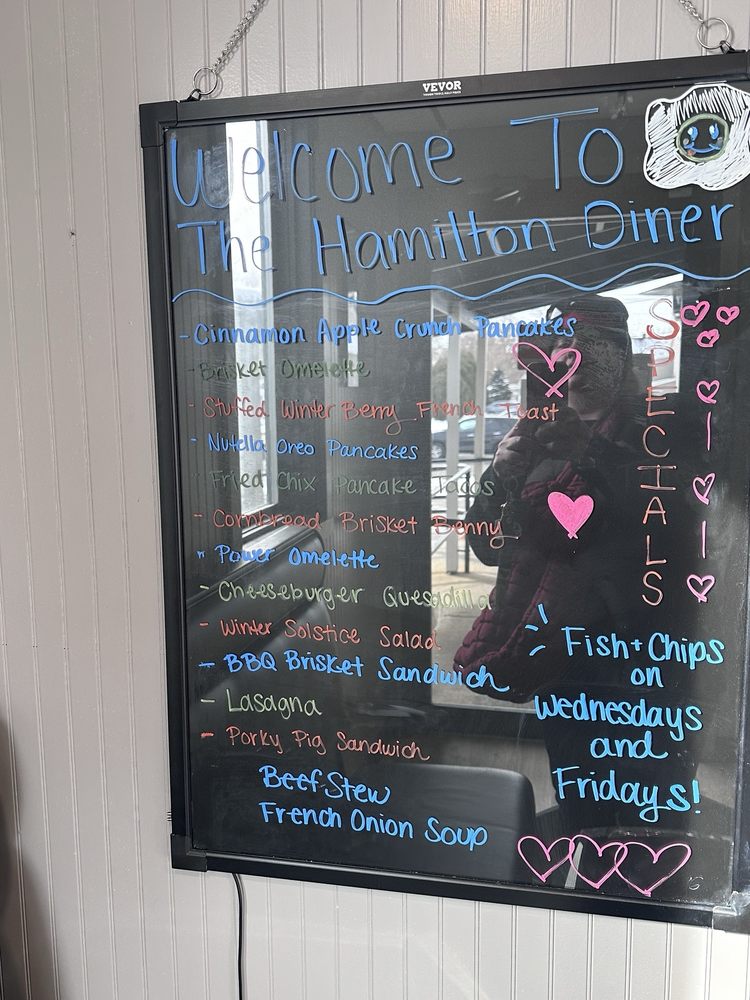 VEVOR
Welcome To
The Hamilton Diner
- Cinnamon Apple Crunch Pancakes
- Brisket Omelette
- Stuffed Winter Berry French Toast
- Nutella Oreo Pancakes
- Fried Chix Pancake Tacos
- Cornbread Brisket Benny
- Power Omelette
- Cheeseburger Quesadilla
- Winter Solstice Salad
- BBQ Brisket Sandwich
- Lasagna
- Porky Pig Sandwich
Beef Stew
French Onion Soup
SPECIALS
Fish + Chips
on
Wednesdays
and
Fridays!